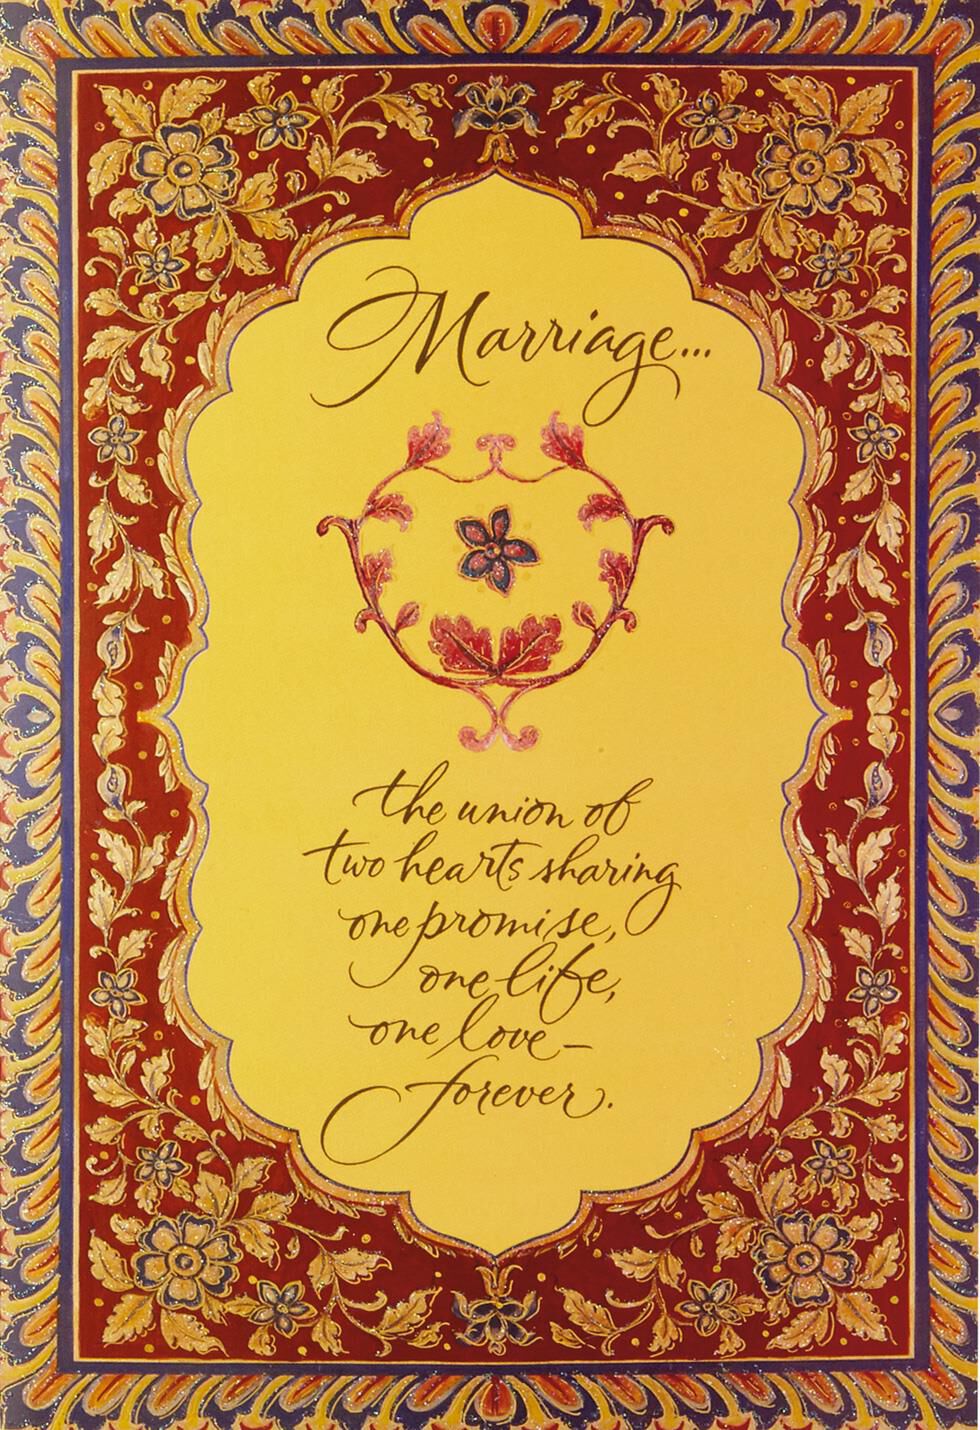 Marriage...
the union of
two hearts sharing
one promise,
one life,
one love–
forever.